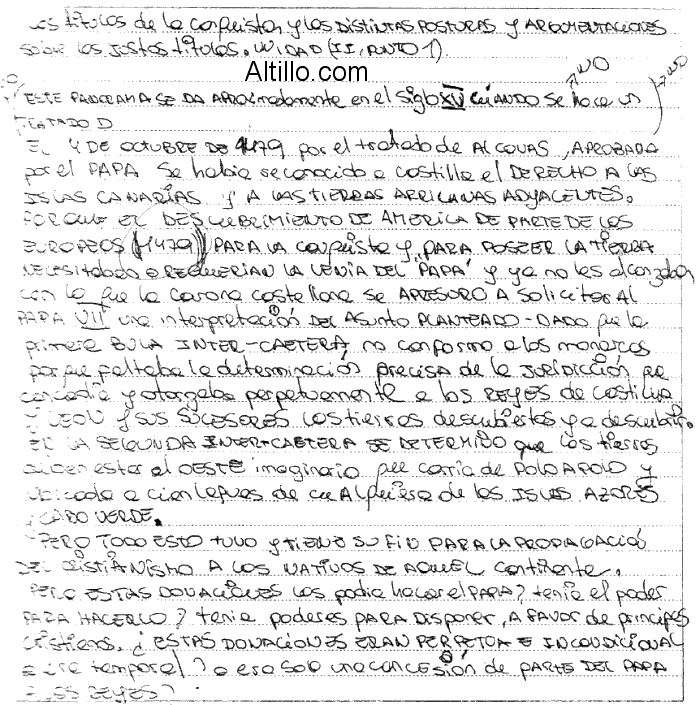 los títulos de la conquista y los DISTINTAS POSTURAS y ARGUMENTACIONES
sobre los JUSTOS títulos. UNIDAD (II, PUNTO 1)
Altillo.com
NO
ESTE PANORAMA SE DA APROXIMADAMENTE en el siglo XV CUANDO se hace un
TRATADO D
EL 4 DE OCTUBRE DE 1479 por el tratado de ALCOVAS, APROBADA
por el PAPA se había reconocido a castilla el DERECHO A LAS
ISLAS CANARIAS y A LAS TIERRAS AFRICANAS ADYACENTES.
PORQUE EL DESCUBRIMIENTO DE AMERICA DE PARTE DE LOS
EUROPEOS (1479) PARA LA conquista y PARA POSEER LA TIERRA
NECESITABAN O REQUERIAN LA VENIA DEL PAPA y ya no les alcanzaba
con lo que la corona castellana se APRESURO A solicitar AL
PAPA VII una interpretación DEL ASUNTO PLANTEADO - DADO que la
primera BULA INTER-CAETERA no conformo a los monarcas
porque faltaba la determinación precisa de la JURIDICCIÓN que
concedía y otorgaba perpetuamente a los REYES DE castilla
Y LEON y sus SUCESORES las tierras descubiertas y a descubrir.
EN LA SEGUNDA INTER-CAETERA SE DETERMINO que las tierras
deben estar al OESTE imaginario que corria de POLO A POLO y
ubicada a cien leguas de cualquiera de las ISLAS AZORES
CABO VERDE.
PERO TODO ESTO TUVO y TIENE SU FIN PARA LA PROPAGACIÓN
DEL cristiANISMO A LOS NATIVOS DE AQUEL continente.
PERO ESTAS DONACIONES los podia hacer el PAPA? tenia el poder
PARA HACERLO? tenia poderes PARA DISPONER, A FAVOR de principes
cristianos. ¿ESTAS DONACIONES ERAN PERPETUA E INCONDICIONAL
temporal? o era solo una concesión de PARTE DEL PAPA
A LOS REYES?